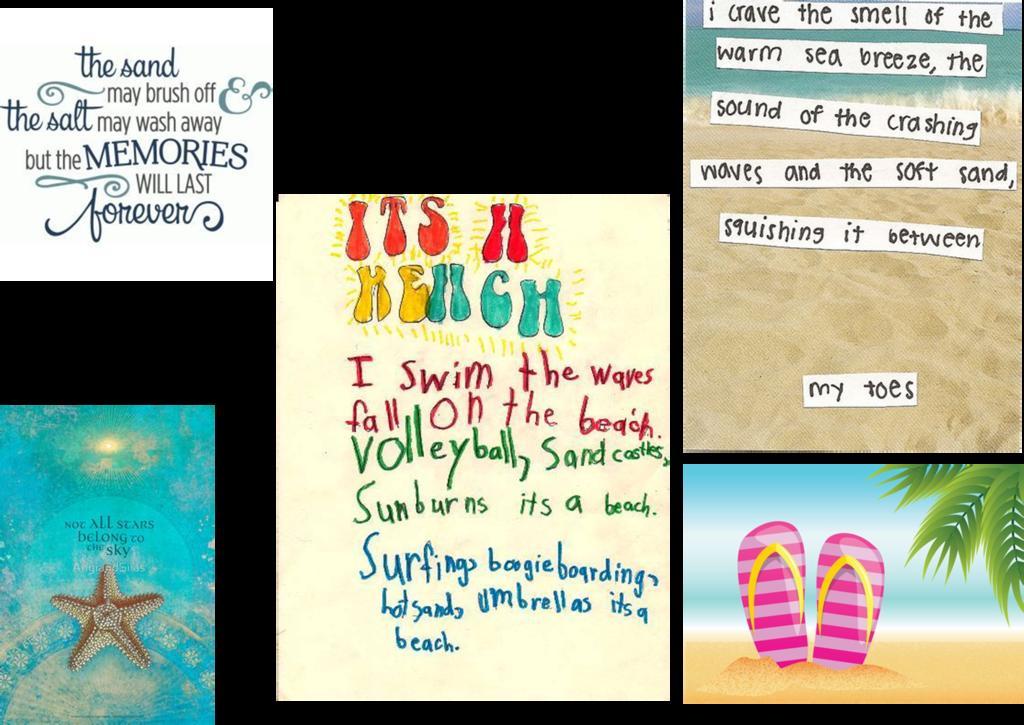 the sand
may brush off &
the salt may wash away
but the MEMORIES
WILL LAST
forever
NOT ALL STARS
BELONG TO
the SKY
ITS A
BEACH
I swim the waves
fall on the beach.
Volleyball, Sandcastles,
Sunburns its a beach.
Surfing, boogieboarding,
hotsand, umbrellas its a
beach.
i crave the smell of the
warm sea breeze, the
sound of the crashing
waves and the soft sand,
squishing it between
my toes